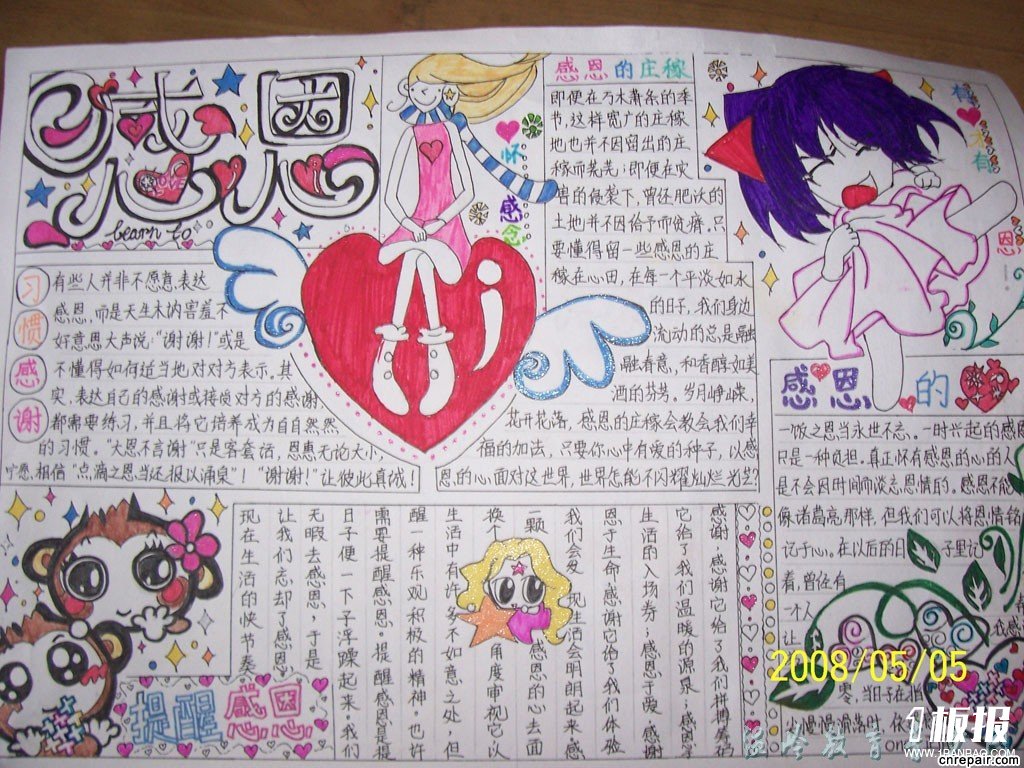 感恩
learn to
习惯感谢
有些人并非不愿意表达
感恩,而是天生木讷害羞不
好意思大声说:“谢谢!”或是
不懂得如何适当地对对方表示。其
实,表达自己的感谢或接纳对方的感谢,
都需要练习,并且将它培养成为自自然然
的习惯。“大恩不言谢”只是客套话,恩惠无论大小,
宁愿相信“点滴之恩当还报以涌泉”!“谢谢!”让彼此真诚!
怀感恩
感恩的庄稼
即便在万木萧条的季
节,这样宽广的庄稼
地也并不因留出的庄
稼而荒芜;即便在灾
害的侵袭下,曾还肥沃的
土地并不因给予而贫瘠。只
要懂得留一些感恩的庄
稼在心田,在每一个平淡如水
的日子,我们身边
流动的总是融
融春意,和香醇如美
酒的芬芳。岁月峥嵘,
花开花落,感恩的庄稼会教会我们幸
福的加法,只要你心中有爱的种子,以感
恩的心面对这世界,世界怎能不闪耀灿烂光芒?
感恩的
一饭之恩当永世不忘。一时兴起的感恩
只是一种负担。真正怀有感恩的心的人
是不会因时间而淡忘恩情的。感恩不能
像诸葛亮那样,但我们可以将恩情铭
记于心。在以后的日子里记
着,曾经有
一个人
让
零,当日子在指
少慢慢滑落时,依
提醒感恩
感谢,感谢它给了我们拼搏
它给了我们温暖的源泉
生活的入场券;感恩于爱,感谢
恩于生命,感谢它给了我们体验
我们会发现生活会明朗起来,感
一颗感恩的心去面
换个角度审视它,以
生活中有许多不如意之处,但
醒一种乐观积极的精神。也许
需要提醒感恩。提醒感恩是提
日子便一下子浮躁起来。我们
无暇去感恩,于是
让我们忘却了感恩
现在生活的快节奏
2008/05/05
1板报
www.1banbao.com
cnrepair.com